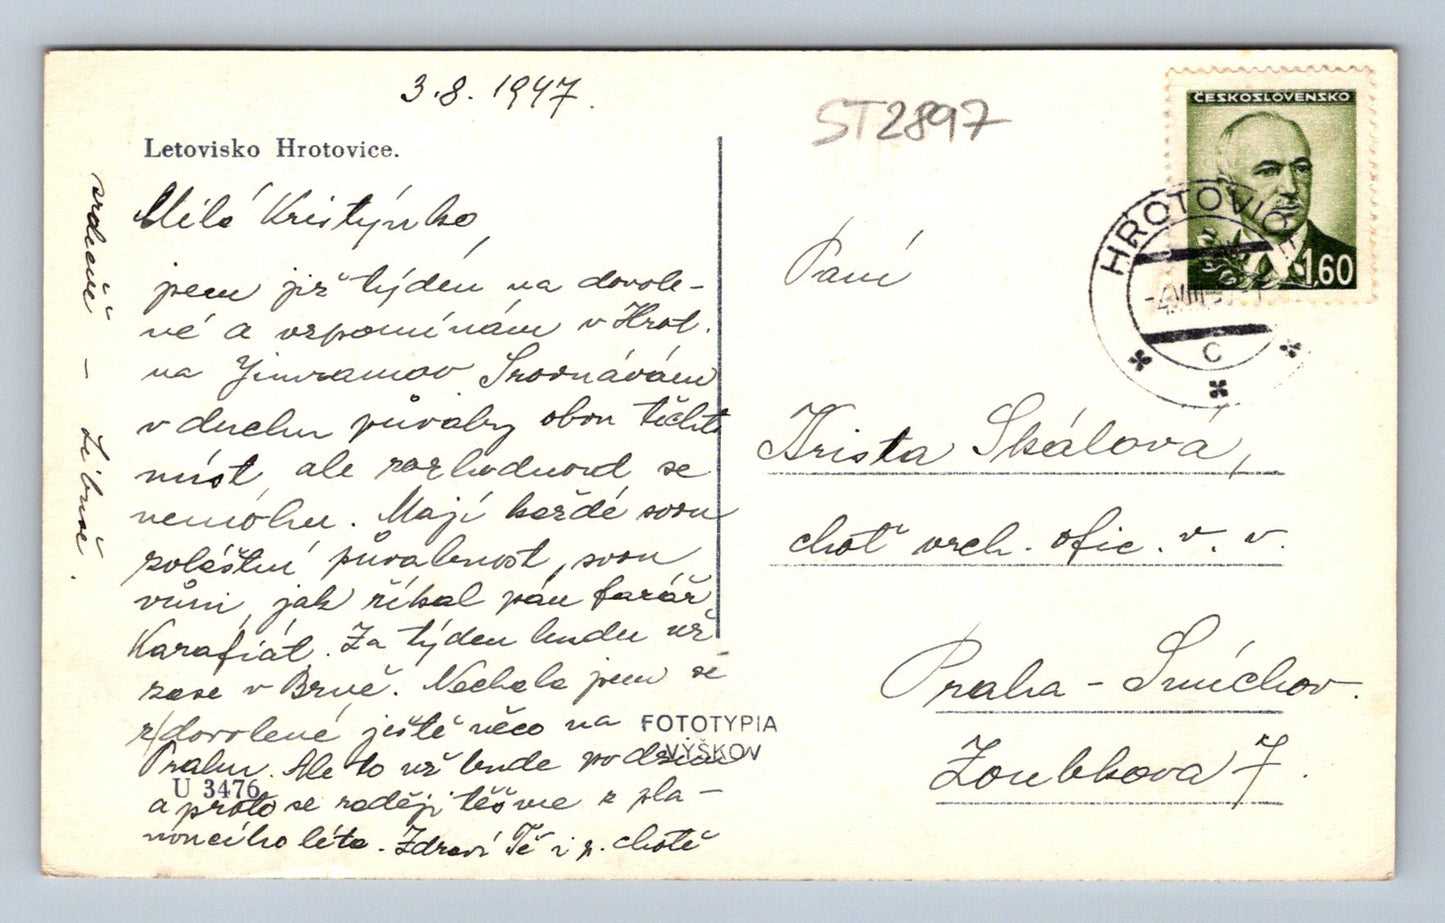 3.8.1947.
ST2897
ČESKOSLOVENSKO
1.60
HROTOVICE
C
Letovisko Hrotovice.
Milá Kristýnko,
jsem již týden na dovole-
né a vzpomínám v Hrot.
na Jimramov Srovnávám
v duchu půvaby obou těchto
míst, ale rozhodnout se
nemohu. Mají každé svou
zvláštní půvabnost, svou
vůni, jak říkal pán farář
Karafiát. Za týden budu už
zase v Brně. Nechala jsem si
z dovolené ještě něco na
Prahu. Ale to už bude podzim
a proto se raději těšme z pla-
noucího léta. Zdraví Tě i p. chotě
srdečně – Libuše.
U 3476
FOTOTYPIA
VYŠKOV
Paní
Krista Skálová,
choť vrch. ofic. v. v.
Praha - Smíchov.
Zoubkova 7.